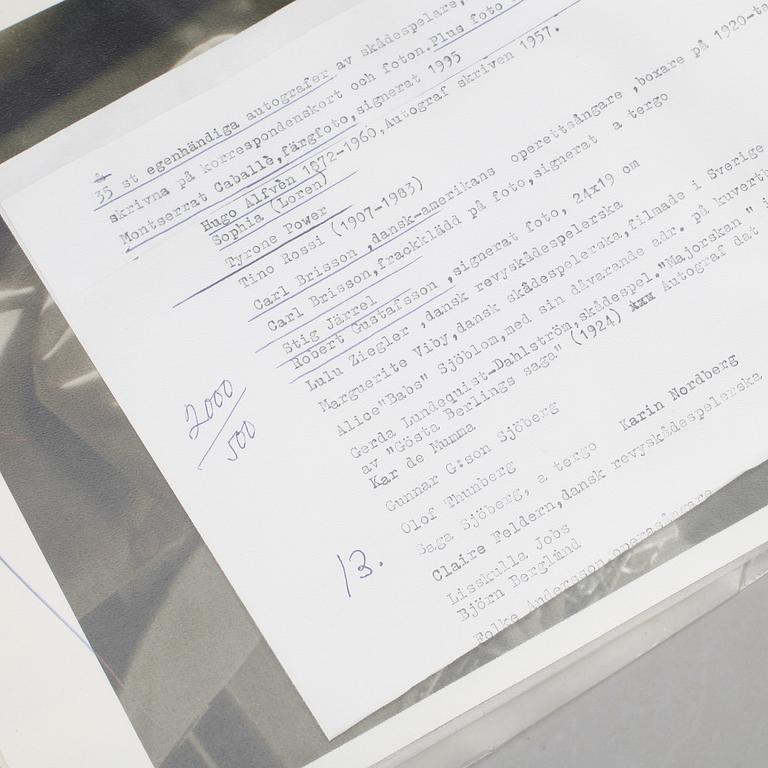 35 st egenhändiga autografer av skådespelare,
skrivna på korrespondenskort och foton. Plus foto
Montserrat Caballè, färgfoto, signerat 1995
Hugo Alfvén 1872-1960, Autograf skriven 1957.
Sophia (Loren)
Tyrone Power
Tino Rossi (1907-1983)
Carl Brisson, dansk-amerikans operettsångare, boxare på 1920-ta
Carl Brisson, frackklädd på foto, signerat a tergo
Stig Järrel
Robert Gustafsson, signerat foto, 24x19 om
Lulu Ziegler, dansk revyskådespelerska
Marguerite Viby, dansk skådespelerska, filmade i Sverige
Alice "Babs" Sjöblom, med sin dåvarande adr. på kuvert
Gerda Lundequist-Dahlström, skådespel. "Majorskan" i
av "Gösta Berlings saga" (1924) Autograf dat
Kar de Mumma
Gunnar G:son Sjöberg
Olof Thunberg Karin Nordberg
Saga Sjöberg, a tergo
Claire Feldern, dansk revyskådespelerska
Lisskulla Jobs
Björn Berglund
Folke Andersson, operasångare
2000
500
13.